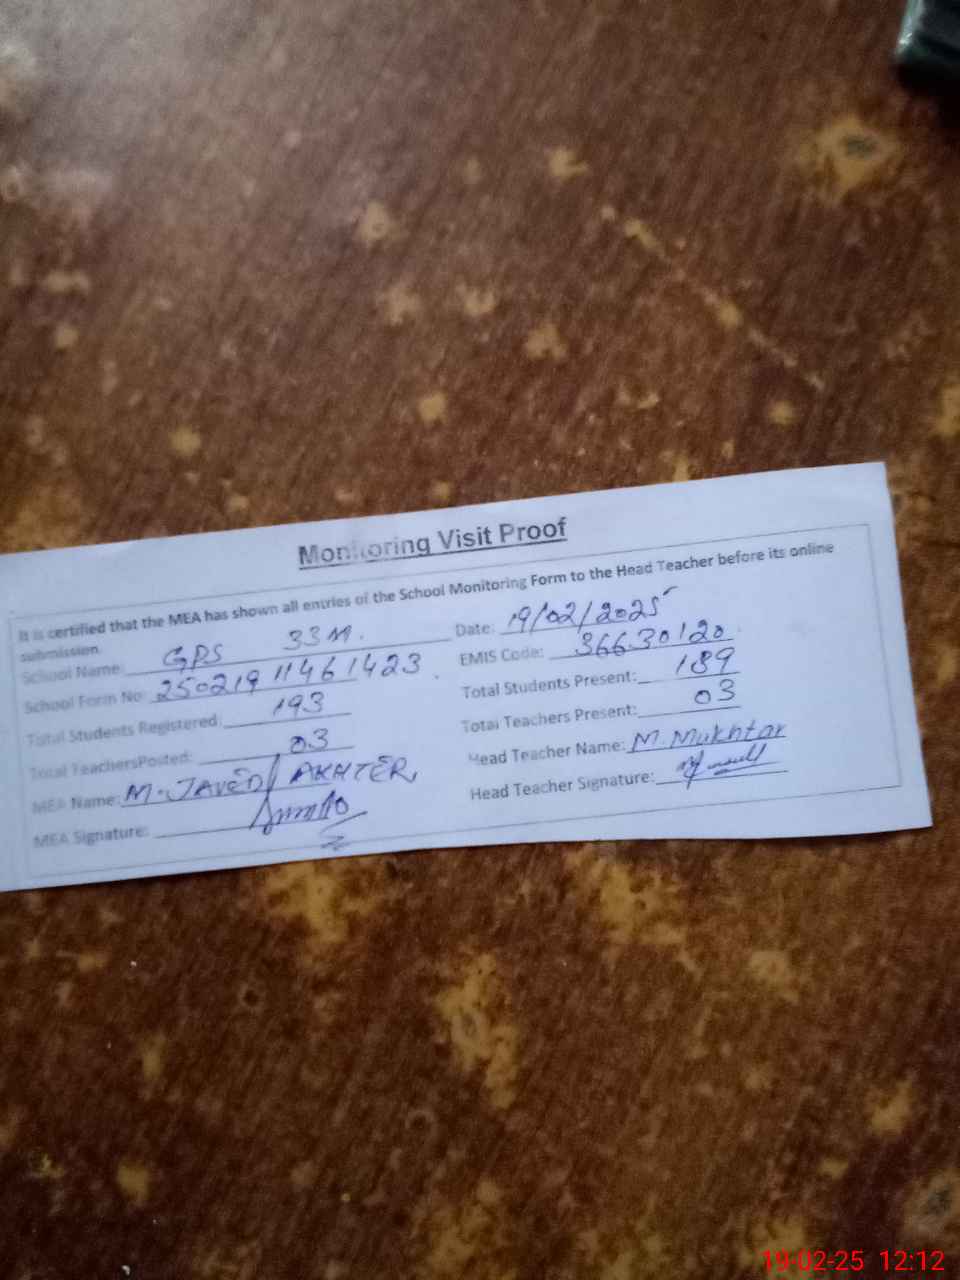 Monitoring Visit Proof
It is certified that the MEA has shown all entries of the School Monitoring Form to the Head Teacher before its online
submission.
School Name: GPS 33M. Date: 19/02/2025
School Form No: 25021911461423 EMIS Code: 36630120
Total Students Registered: 193 Total Students Present: 189
Total TeachersPosted: 03 Total Teachers Present: 03
MEA Name: M. JAVED AKHTER Head Teacher Name: M. Mukhtar
MEA Signature: Head Teacher Signature:
19-02-25 12:12